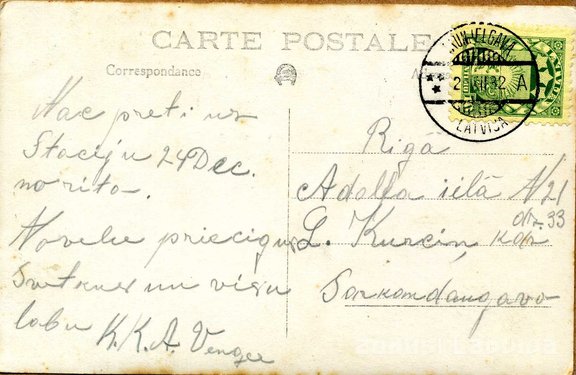 CARTE POSTALE
Correspondance
JAUNJELGAVA
2 XII 32 A
LATVIJA
Nac preti uz
Staciju 24 Dec.
no rita.
Novelu priecigus
Svetkus un visu
labu K.K.A. Venger
Rīgā
Adolfa ielā N 21
dz. 33
L. Kurcin, kdz
Sarkandaugavā